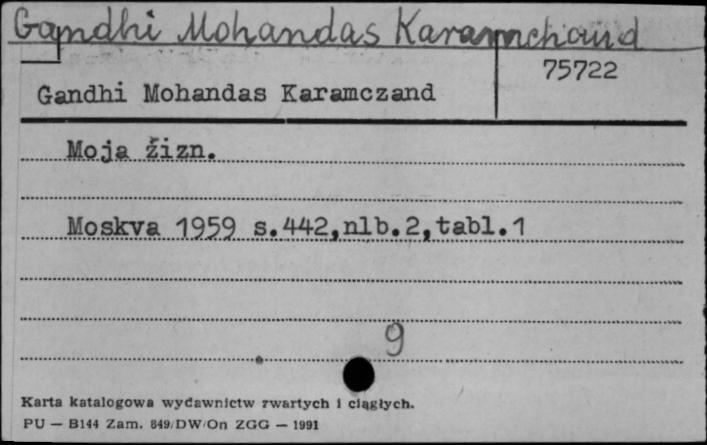 Gandhi Mohandas Karamchand
75722
Gandhi Mohandas Karamczand
Moja žizn.
Moskva 1959 s.442,nlb.2,tabl.1
9
Karta katalogowa wydawnictw zwartych i ciągłych.
PU — B144 Zam. 849/DW/On ZGG — 1991